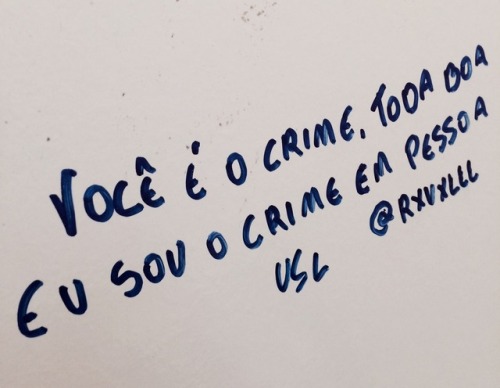 VOCÊ É O CRIME, TODA BOA
EU SOU O CRIME EM PESSOA
USL @RXVXLLL